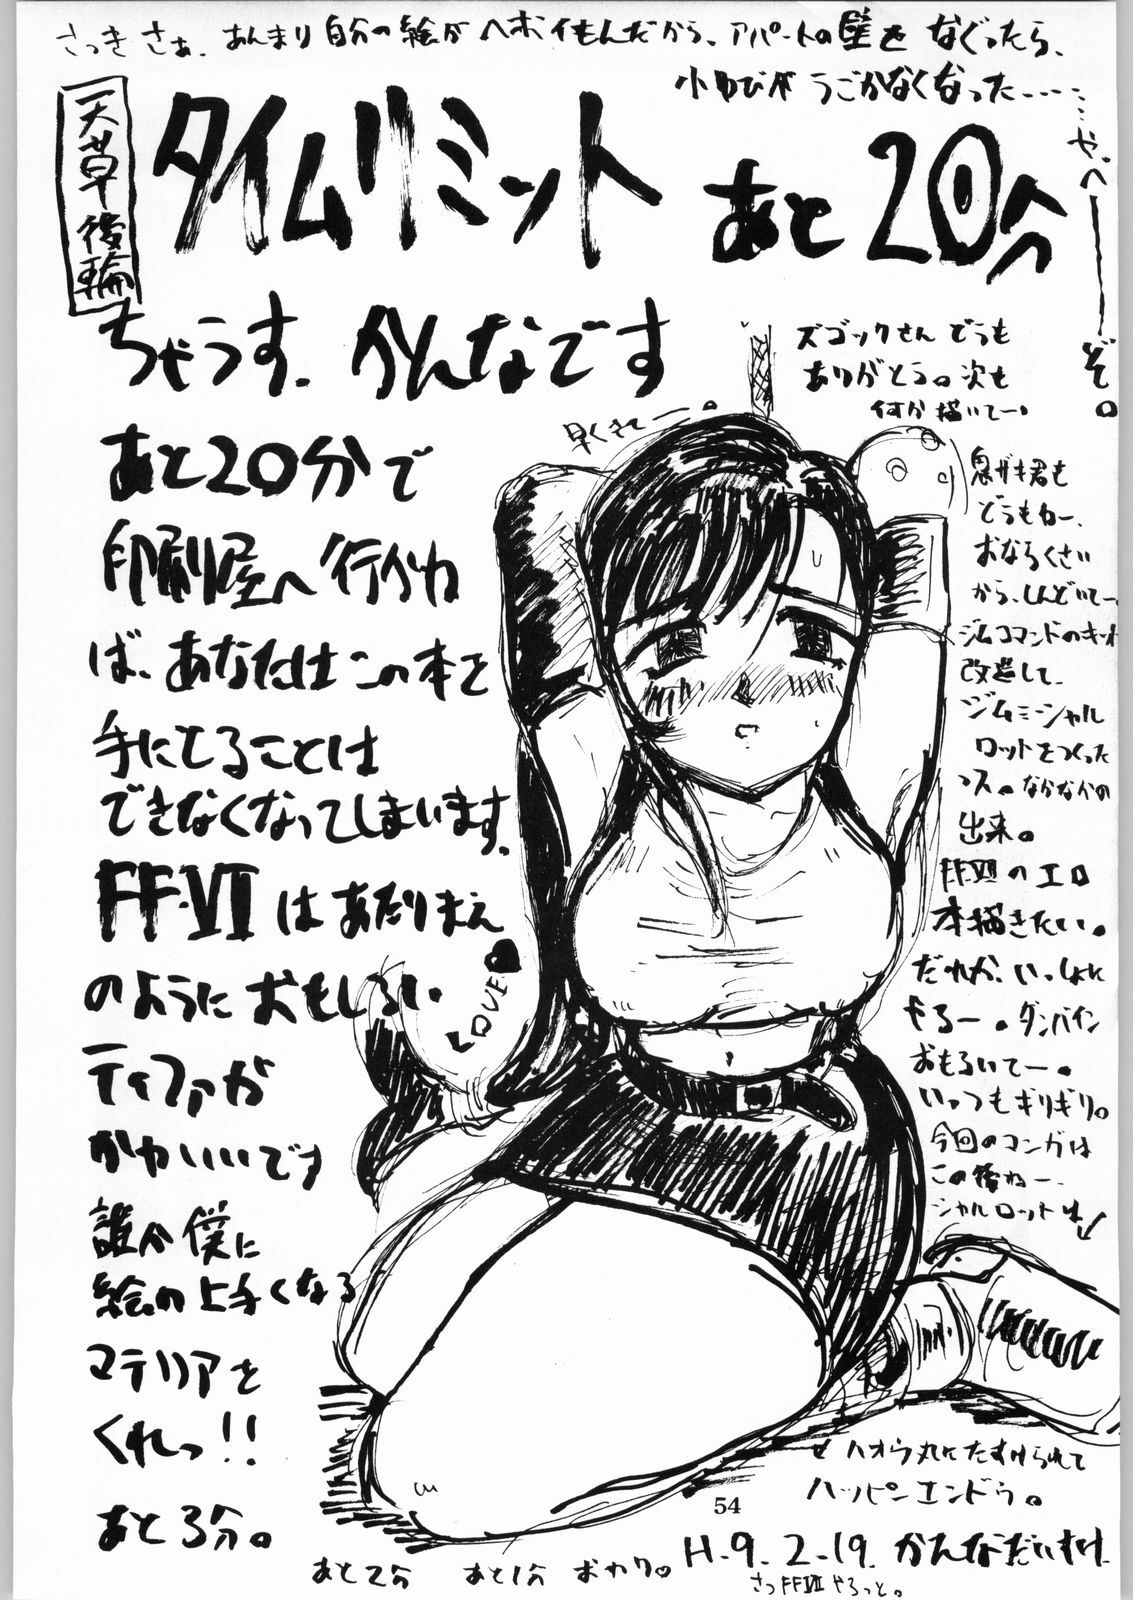 さっきさぁ、あんまり自分の絵がヘボイもんだから、アパートの壁をなぐったら、
小ゆびがうごかなくなった……
やべーーぞ。
天草後輪
タイムリミット あと20分
ちゃうす、かんなです
あと20分で
印刷屋へ行かね
ば、あなたはこの本を
手にてることは
できなくなってしまいます。
FF・VIIはあたりまえ
のようにおもしろい
ティファが
かわいいです
誰か僕に
絵の上手くなる
マテリアを
くれっ!!
あと3分。
あと2分 あと1分 おわり。
早くきてー。
LOVE
ズゴックさんどうも
ありがとう。次も
何か描いてー。
君も
どうもねー、
おならくさい
から、しんどいてー、
ジムコマンドのキット
改造して、
ジムミーシャル
ロットをつくった
ス。なかなかの
出来。
FFVIIのエロ
本描きたい。
だれか、いっしょに
やろー。ダンバイン
おもろいてー。
いっつもギリギリ。
今回のマンガは
この後ねー、
シャルロットは
ハオウ丸にたすけられて
ハッピンエンドゥ。
54
H.9.2.19. かんなだいすけ
さっFFVIIやろっと。